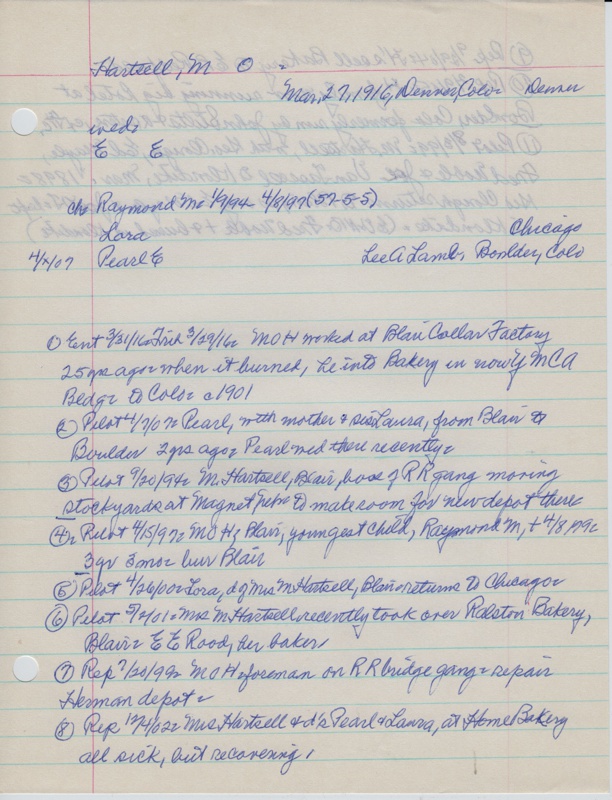 Hartsell, M O =
Mar, 27, 1916, Denver, Colo= Denver
wed=
E E
ch= Raymond M= 1/9/94 4/8/97 (57-5-5)
Lora Chicago
4/x/07 Pearl E Lee A Lamb, Boulder, Colo
① Ent 3/31/16= Trib 3/29/16= M O H worked at Blair Collar Factory
25 yrs ago= when it burned, he into Bakery in now Y M C A
Bldg= to Colo= c1901
② Pilot 4/7/07= Pearl, with mother & sis Laura, from Blair to
Boulder 2 yrs ago= Pearl wed there recently=
③ Pilot 9/20/94= M. Hartsell, Blair, boss of RR gang moving
stockyards at Magnet, Nebr= to make room for new depot there
④= Pilot 4/15/97= M O H, Blair, youngest child, Raymond M, + 4/8/97=
3 yr 3 mo= bur Blair
⑤ Pilot 4/26/00= Lora, d of Mrs M Hartsell, Blair= returns to Chicago=
⑥ Pilot 5/2/01= Mrs M Hartsell recently took over Ralston Bakery,
Blair= E E Rood, her baker,
⑦ Rep 7/20/99= M O H= foreman on RR bridge gang= repair
Herman depot=
⑧ Rep 12/4/02= Mrs Hartsell & d's Pearl & Laura, at Home Bakery
all sick, but recovering,